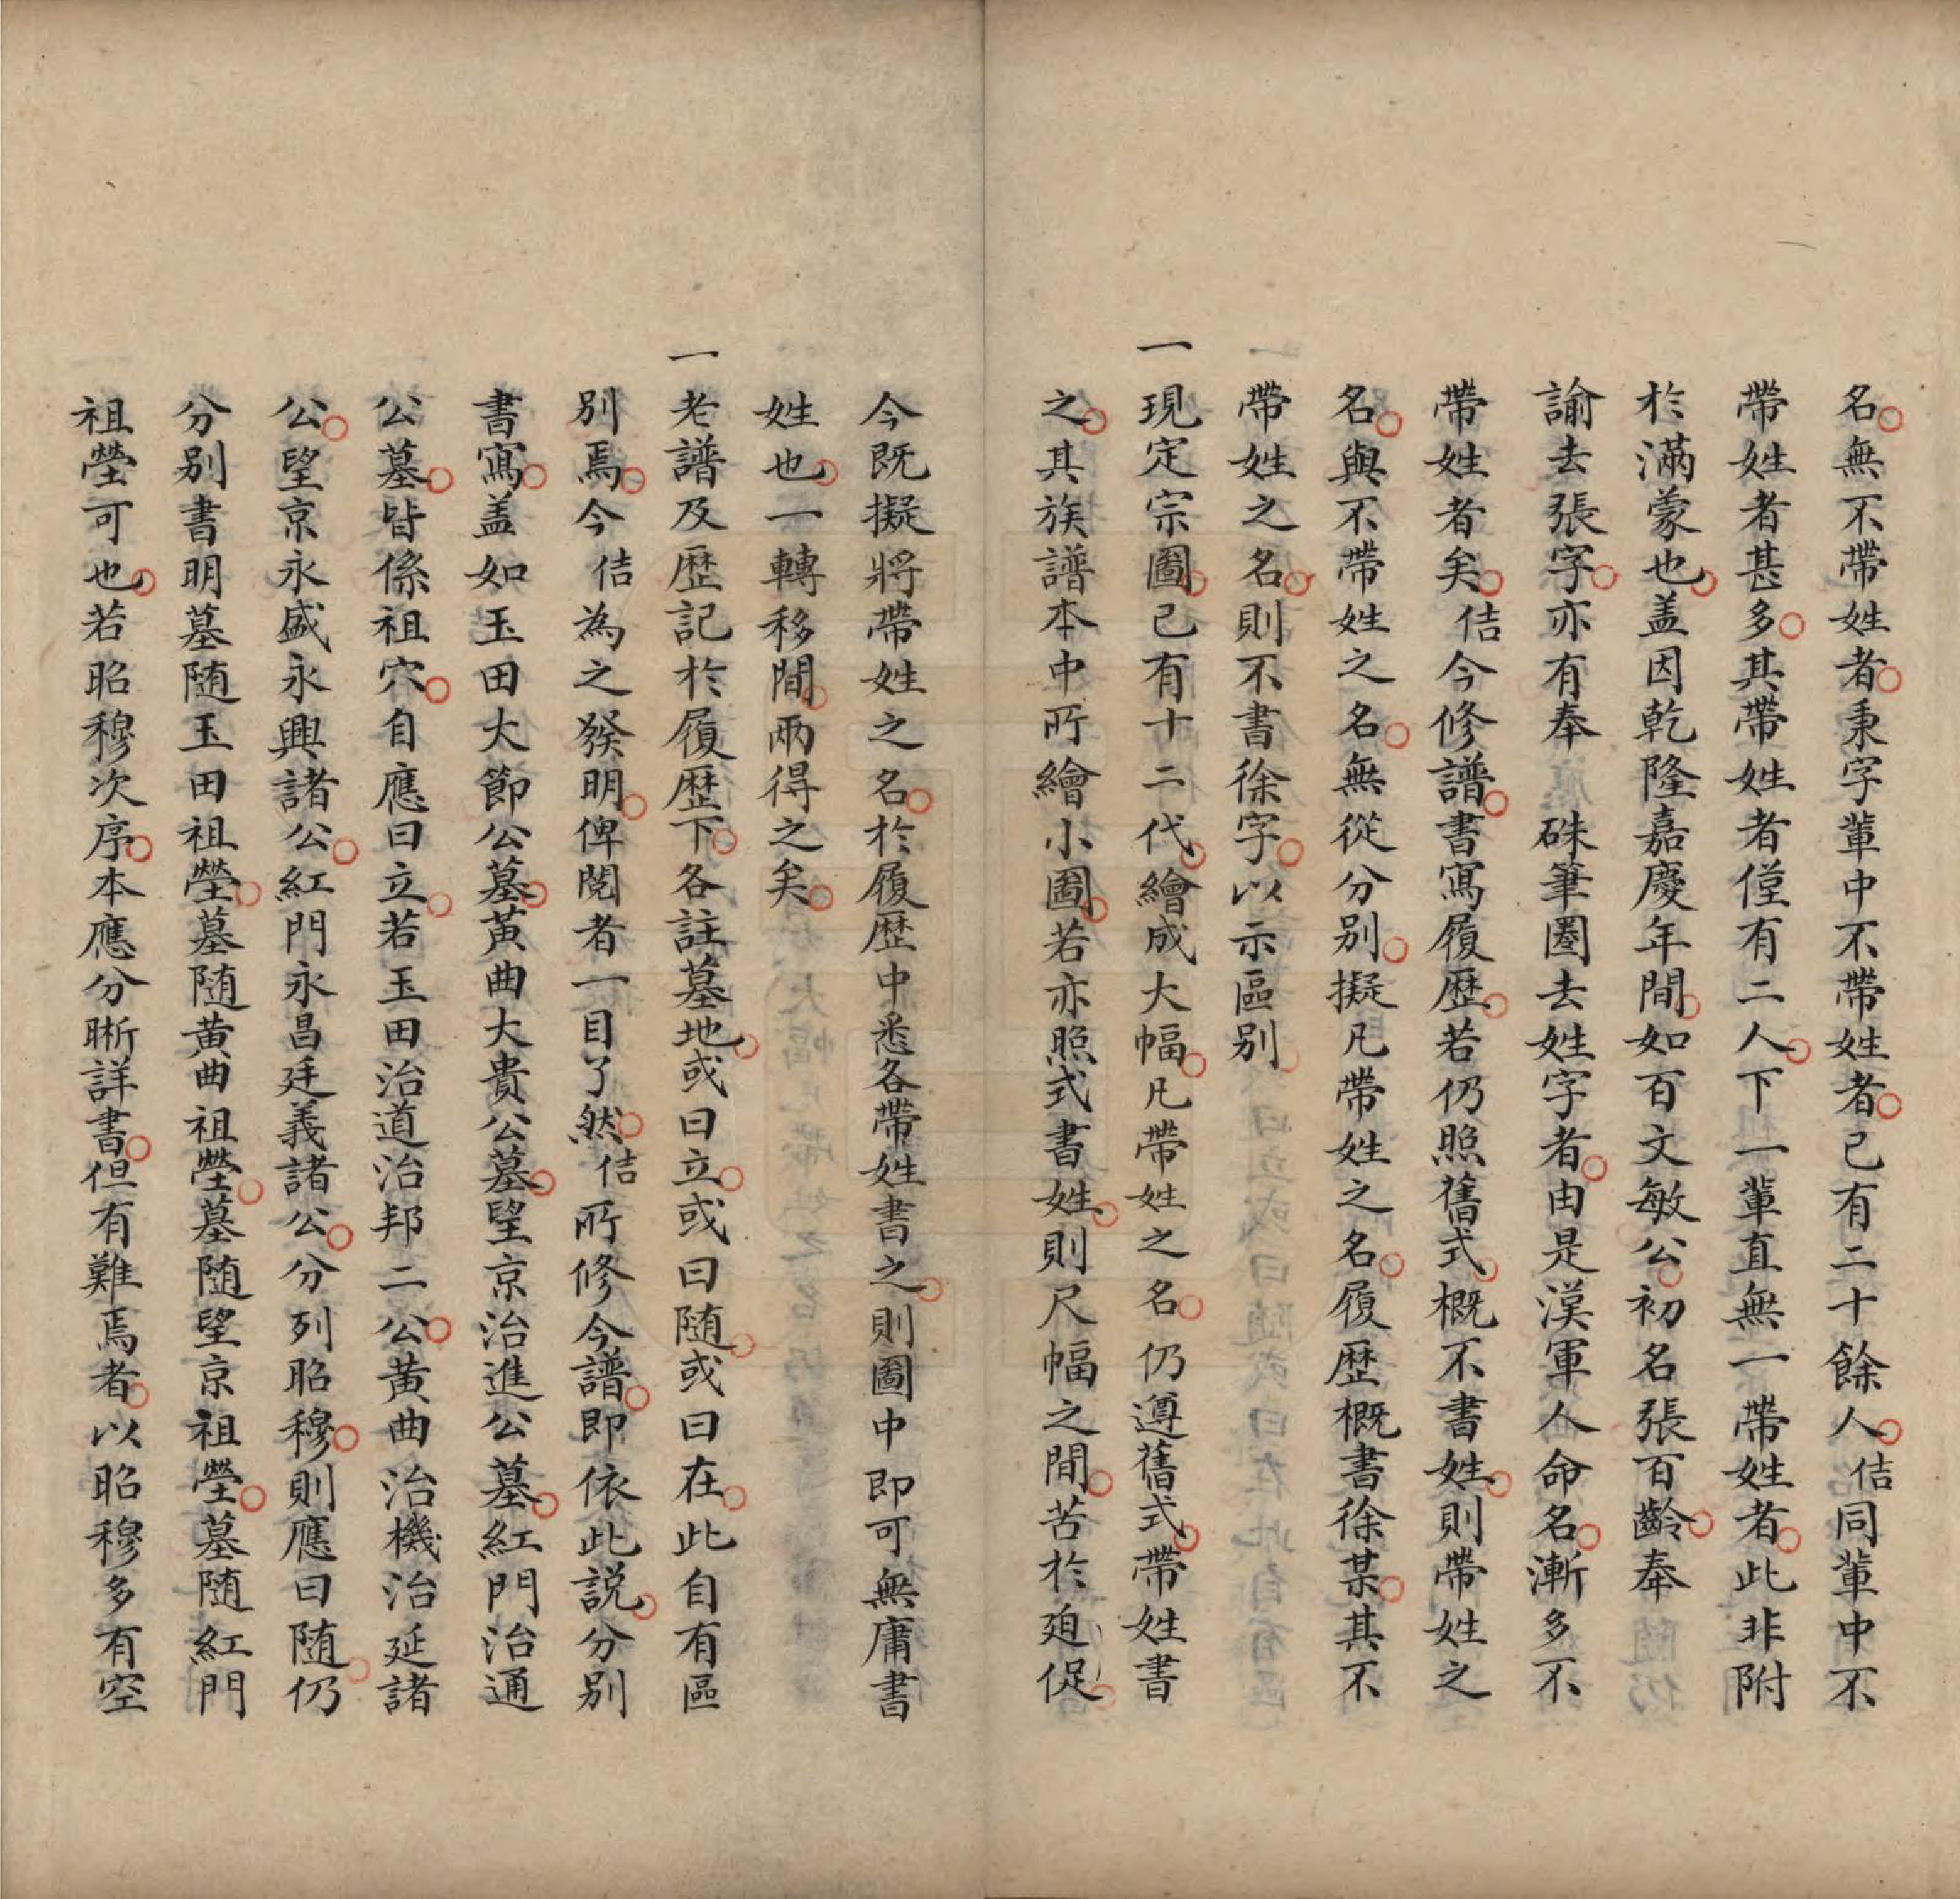 名無不帶姓者秉字軰中不帶姓者已有二十餘人佶同軰中不
帶姓者甚多其帶姓者僅有二人下一軰直無一帶姓者此非附
於滿蒙也盖因乾隆嘉慶年間如百文敏公初名張百齡奉
諭去張字亦有奉硃筆圈去姓字者由是漢軍人命名漸多不
帶姓者矣佶今修譜書寫履歷若仍照舊式概不書姓則帶姓之
名與不帶姓之名無從分別擬凡帶姓之名履歷概書徐某其不
帶姓之名則不書徐字以示區别
一現定宗圖已有十二代繪成大幅凡帶姓之名仍遵舊式帶姓書
之其族譜本中所繪小圖若亦照式書姓則尺幅之間苦於廹促
今既擬將帶姓之名於履歷中悉各帶姓書之則圖中即可無庸書
姓也一轉移間兩得之矣
一老譜及歷記於履歷下各註墓地或曰立或曰随或曰在此自有區
別焉今佶為之發明俾閱者一目了然佶所修今譜即依此說分別
書寫盖如玉田大節公墓黄曲大貴公墓望京治進公墓紅門治通
公墓皆係祖穴自應曰立若玉田治道治邦二公黄曲治機治延諸
公望京永盛永興諸公紅門永昌廷義諸公分列昭穆則應曰随仍
分别書明墓随玉田祖塋墓随黄曲祖塋墓随望京祖塋墓随紅門
祖塋可也若昭穆次序本應分晰詳書但有難焉者以昭穆多有空